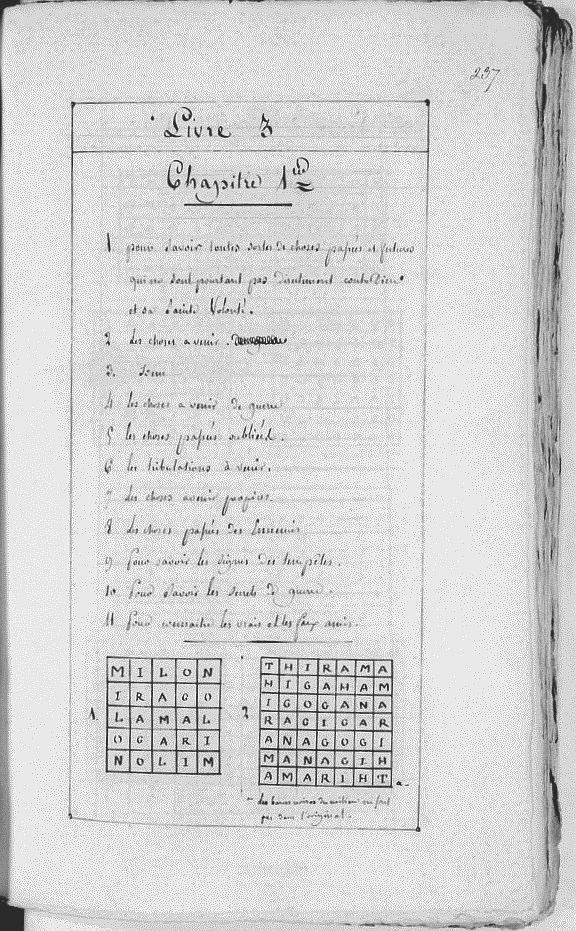 237
Livre 3
Chapitre 1er
1. pour savoir toutes sortes de choses passées et futures
qui ne sont pourtant pas directement contre Dieu
et sa Sainte Volonté.
2 des choses a venir.
3. Idem
4 les choses a venir de guerre
5 les choses passées oubliées.
6 les tribulations à venir.
7 des choses avenir propices.
8 des choses passées des Ennemis
9 Pour savoir les signes des tempêtes.
10 Pour savoir les secrets de guerre.
11 Pour connaitre les vrais et les faux amis.
1.
M I L O N
I R A G O
L A M A L
O G A R I
N O L I M
2
T H I R A M A
H I G A H A M
I G O G A N A
R A G I G A R
A N A G O G I
M A N A G I H
A M A R I H T
a.
les barres noires du milieu ne sont
pas dans l'original.